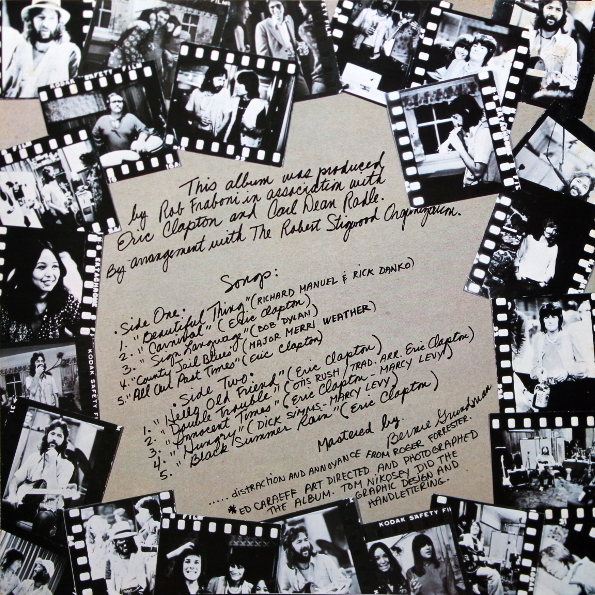 This album was produced
by Rob Fraboni in association with
Eric Clapton and Carl Dean Radle.
By arrangement with The Robert Stigwood Organization.
Songs:
Side One:
1. "Beautiful Thing" (RICHARD MANUEL & RICK DANKO)
2. "Carnival" (Eric Clapton)
3. "Sign Language" (BOB DYLAN)
4. "County Jail Blues" (MAJOR MERRI WEATHER)
5. "All Our Past Times" (Eric Clapton)
"Side Two:"
1. "Hello Old Friend" (Eric Clapton)
2. "Double Trouble" (OTIS RUSH / TRAD. ARR. Eric Clapton)
3. "Innocent Times" (Eric Clapton - MARCY LEVY)
4. "Hungry" (DICK SIMMS - MARCY LEVY)
5. "Black Summer Rain" (Eric Clapton)
Mastered by
Bernie Grundman
..... DISTRACTION AND ANNOYANCE FROM ROGER FORRESTER.
* ED CARAEFF ART DIRECTED AND PHOTOGRAPHED
THE ALBUM. TOM NIKOSEY DID THE
GRAPHIC DESIGN AND
HANDLETTERING.
KODAK SAFETY FILM
KODAK SAFETY
KODAK SAFETY FI